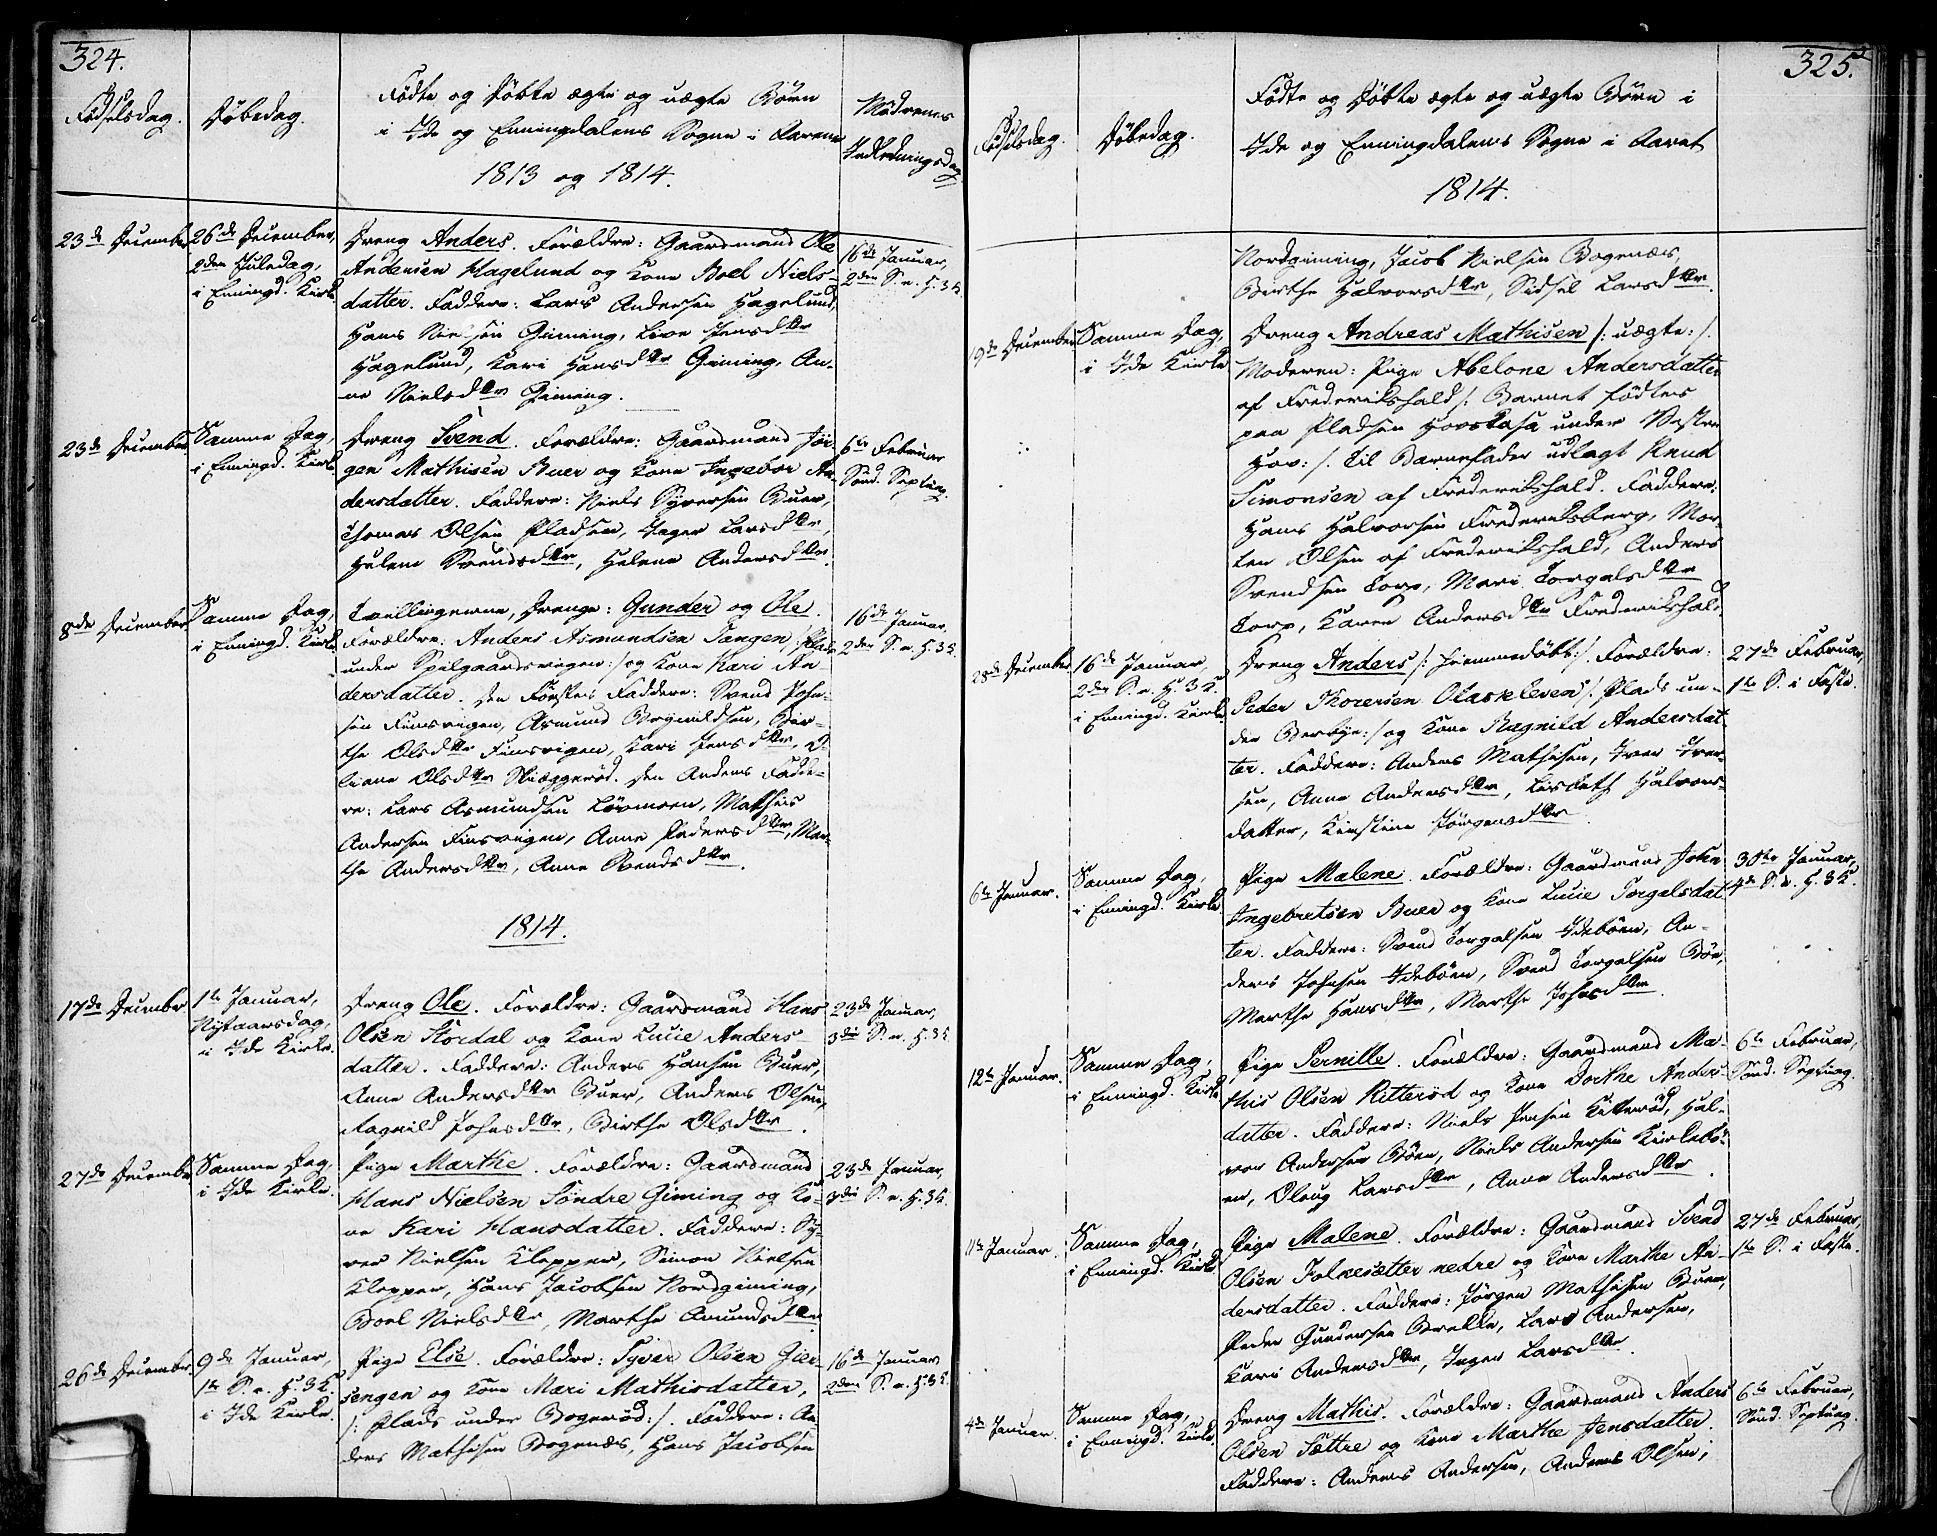 324.
Fødselsdag.
Døbedag.
Fødte og Døbte ægte og uægte Børn
i Ide og Enningdalens Sogne i Aarene
1813 og 1814.
Mødrenes
Indledningsdag
23de December
26de December,
2den Juledag,
i Enningd. Kirke
Dreng Anders. Forældre: Gaardmand Ole
Andersen Hagelund og Kone Boel Niels-
datter. Faddere: Lars Andersen Hagelund,
Hans Nielsen Gimming, Live Jensdttr
Hagelund, Kari Hansdttr Gimming, An-
ne Nielsdttr Gimming.
16de Januar,
2den S. e. H. 3 K.
23de December
Samme Dag,
i Enningd. Kirke
Dreng Svend. Forældre: Gaardmand Jør-
gen Mathisen Buer og Kone Ingebor An-
dersdatter. Faddere: Niels Syversen Buer,
Thomas Olsen Pladsen, Inger Larsdttr,
Helene Svendsdttr, Helene Andersdttr.
6te Februar
Sønd. Septuag.
8de December
Samme Dag,
i Enningd. Kirke
Tvillingerne, Drenge: Gunder og Ole.
Forældre: Anders Asmundsen Tangen /: Plads
under Spilgaardsvigen :/ og Kone Kari An-
dersdatter. Den Førstes Faddere: Svend John-
sen Finsvigen, Asmund Brynildsen, Bir-
the Olsdttr Finsvigen, Kari Jensdttr, O-
liane Olsdttr Skiæggerød. Den Andens Fadde-
re: Lars Asmundsen Løvmoen, Mathis
Andersen Finsvigen, Anne Pedersdttr, Mar-
the Andersdttr, Anne Svendsdttr.
16de Januar,
2den S. e. H. 3 K.
1814.
17de December
1te Januar,
Nytaarsdag,
i Ide Kirke.
Dreng Ole. Forældre: Gaardmand Hans
Olsen Stordal og Kone Lucie Anders-
datter. Faddere: Anders Hansen Buer,
Anne Andersdttr Buer, Anders Olsen,
Ragnild Johnsdttr, Birthe Olsdttr.
23de Januar,
3die S. e. H. 3 K.
27de December
Samme Dag,
i Ide Kirke.
Pige Marthe. Forældre: Gaardmand
Hans Nielsen Søndre Giming og Ko-
ne Kari Hansdatter. Faddere: Sy-
ver Nielsen Klepper, Simon Nielsen
Klepper, Hans Jacobsen Nordgimming,
Boel Nielsdttr, Marthe Amundsdttr
23de Januar,
3die S. e. H. 3 K.
26de December.
9de Januar,
1te S. e. H. 3 K.
i Ide Kirke.
Pige Else. Forældre: Syver Olsen Gier-
sengen og Kone Mari Mathisdatter,
/: Plads under Bogerød :/. Faddere: An-
ders Mathisen Bogenæs, Hans Jacobsen
16de Januar
2den S. e. H. 3 K.
325.
Fødselsdag.
Døbedag.
Fødte og Døbte ægte og uægte Børn i
Ide og Enningdalens Sogne i Aaret
1814.
Nordgimming, Jacob Nielsen Bogenæs,
Birthe Halvorsdttr, Sidsel Larsdttr.
19de December
Samme Dag,
i Ide Kirke
Dreng Andreas Mathisen /: uægte :/.
Moderen: Pige Abelone Andersdatter
af Frederikshald /: Barnet fødtes
paa Pladsen Hovskasa under Vestre
Hov :/. Til Barnefader udlagt Knud
Simonsen af Frederikshald. Faddere:
Hans Halvorsen Frederiksberg, Mor-
ten Olsen af Frederikshald, Anders
Svendsen Torp, Mari Torgalsdttr
Torp, Karen Andersdttr Frederikshald
28de December
16de Januar,
2den S. e. H. 3 K.
i Enningd. Kirke
Dreng Anders /: hiemmedøbt :/. Forældre:
Peder Thorersen Olaskleven /: Plads un-
der Berbye :/ og Kone Ragnild Andersdat-
ter. Faddere: Anders Mathisen, Iver Iver-
sen, Anne Andersdttr, Lisbeth Halvors-
datter, Kirstine Jørgensdttr.
27de Februar,
1te S. i Faste.
6te Januar.
Samme Dag,
i Enningd. Kirke
Pige Malene. Forældre: Gaardmand John
Ingebretsen Buer og Kone Lucie Torgalsdat-
ter. Faddere: Svend Torgalsen Idebøen, An-
ders Johnsen Idebøen, Svend Torgalsen Bøe,
Marthe Hansdttr, Marthe Johnsdttr.
30te Januar,
4de S. e. H. 3 K.
12te Januar.
Samme Dag,
i Enningd. Kirke
Pige Pernille. Forældre: Gaardmand Ma-
this Olsen Kitterød og Kone Dorthe Anders-
datter. Faddere: Niels Jensen Kitterød, Hal-
vor Andersen Bøen, Niels Andersen Kirkebø-
en, Oloug Larsdttr, Anne Andersdttr.
6te Februar,
Sønd. Septuag.
11te Januar.
Samme Dag,
i Enningd. Kirke
Pige Malene. Forældre: Gaardmand Svend
Olsen Folkesætter nedre og Kone Marthe An-
dersdatter. Faddere: Jørgen Mathisen Buer,
Peder Gundersen Brekke, Lars Andersen,
Kari Andersdttr, Inger Larsdttr.
27de Februar,
1te S. i Faste.
4de Januar.
Samme Dag,
i Enningd. Kirke.
Dreng Mathis. Forældre: Gaardmand Anders
Olsen Sættre og Kone Marthe Jensdatter.
Faddere: Anders Andersen, Anders Olsen,
6te Februar,
Sønd. Septuag.